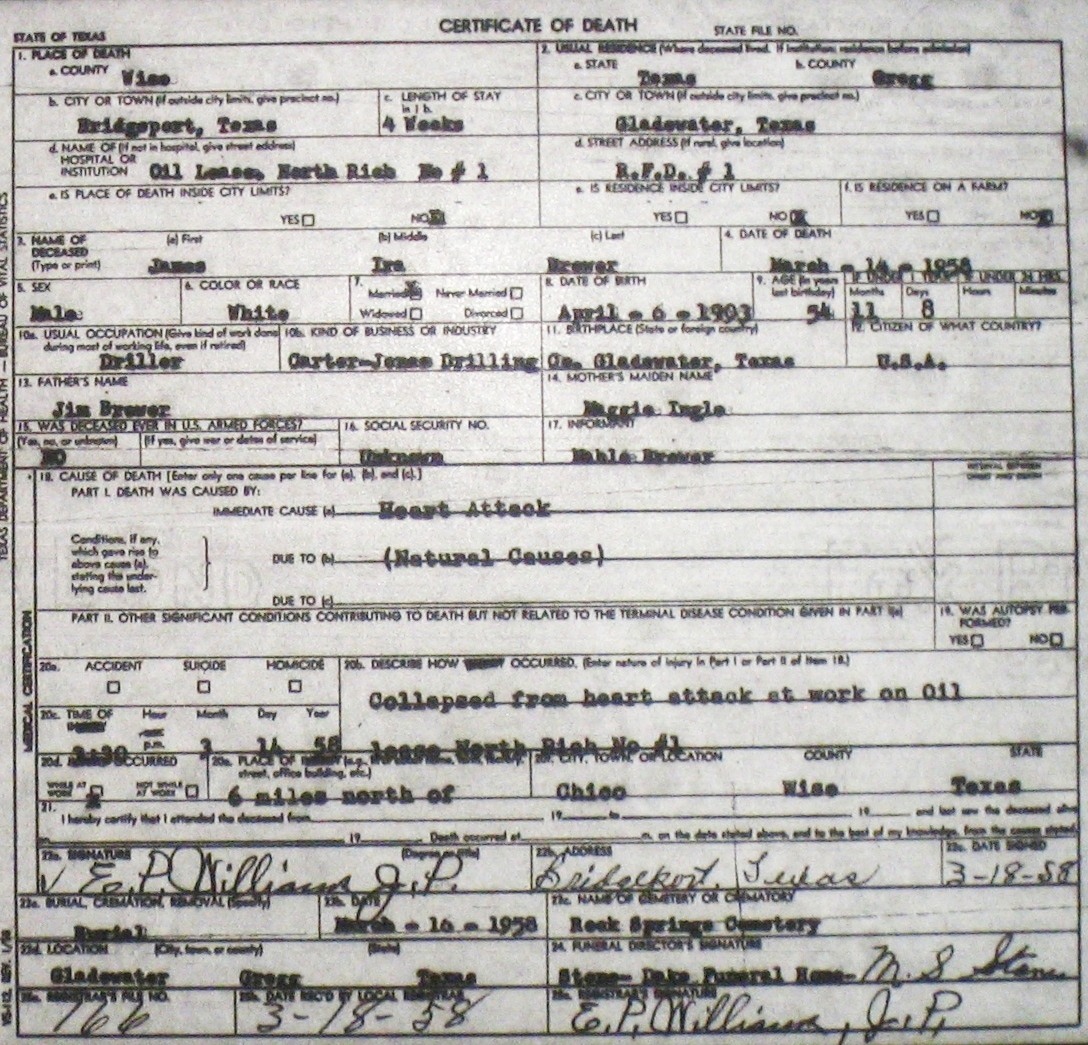 CERTIFICATE OF DEATH
STATE OF TEXAS STATE FILE NO.
1. PLACE OF DEATH 2. USUAL RESIDENCE (Where deceased lived. If institution: residence before admission)
a. COUNTY Wise a. STATE Texas b. COUNTY Gregg
b. CITY OR TOWN (If outside city limits, give precinct no.) c. LENGTH OF STAY in 1 b. c. CITY OR TOWN (If outside city limits, give precinct no.)
Bridgeport, Texas 4 Weeks Gladewater, Texas
d. NAME OF (If not in hospital, give street address) d. STREET ADDRESS (If rural, give location)
HOSPITAL OR
INSTITUTION Oil Lease, North Rich No # 1 R.F.D. # 1
e. IS PLACE OF DEATH INSIDE CITY LIMITS? e. IS RESIDENCE INSIDE CITY LIMITS? f. IS RESIDENCE ON A FARM?
YES NO YES NO YES NO
3. NAME OF DECEASED (Type or print) (a) First (b) Middle (c) Last 4. DATE OF DEATH
James Ira Brewer March - 14 - 1958
5. SEX 6. COLOR OR RACE 7. Married X Never Married 8. DATE OF BIRTH 9. AGE (In years last birthday) IF UNDER 1 YEAR IF UNDER 24 HRS.
Widowed Divorced Months Days Hours Minutes
Male White April - 6 - 1903 54 11 8
10a. USUAL OCCUPATION (Give kind of work done during most of working life, even if retired) 10b. KIND OF BUSINESS OR INDUSTRY 11. BIRTHPLACE (State or foreign country) 12. CITIZEN OF WHAT COUNTRY?
Driller Carter-Jones Drilling Co. Gladewater, Texas U.S.A.
13. FATHER'S NAME 14. MOTHER'S MAIDEN NAME
Jim Brewer Maggie Ingle
15. WAS DECEASED EVER IN U.S. ARMED FORCES? 16. SOCIAL SECURITY NO. 17. INFORMANT
(Yes, no, or unknown) (If yes, give war or dates of service)
NO Unknown Mable Brewer
18. CAUSE OF DEATH [Enter only one cause per line for (a), (b), and (c).] INTERVAL BETWEEN ONSET AND DEATH
PART I. DEATH WAS CAUSED BY:
IMMEDIATE CAUSE (a) Heart Attack
Conditions, if any, which gave rise to above cause (a), stating the underlying cause last.
DUE TO (b) (Natural Causes)
DUE TO (c)
PART II. OTHER SIGNIFICANT CONDITIONS CONTRIBUTING TO DEATH BUT NOT RELATED TO THE TERMINAL DISEASE CONDITION GIVEN IN PART I(a) 19. WAS AUTOPSY PERFORMED?
YES NO
20a. ACCIDENT SUICIDE HOMICIDE 20b. DESCRIBE HOW OCCURRED. (Enter nature of injury in Part I or Part II of Item 18.)
Collapsed from heart attack at work on Oil
20c. TIME OF Hour Month Day Year
p.m.
3:30 3 14 58 lease North Rich No #1
20d. OCCURRED 20e. PLACE OF street, office building, etc.) 20f. CITY, TOWN, OR LOCATION COUNTY STATE
WHILE AT WORK X NOT WHILE AT WORK 6 miles north of Chico Wise Texas
21. I hereby certify that I attended the deceased from 19 to 19 and last saw the deceased alive
on 19 Death occurred at m. on the date stated above, and to the best of my knowledge, from the causes stated.
22a. SIGNATURE (Degree or title) 22b. ADDRESS 22c. DATE SIGNED
E. P. Williams J.P. Bridgeport, Texas 3-18-58
23a. BURIAL, CREMATION, REMOVAL (Specify) 23b. DATE 23c. NAME OF CEMETERY OR CREMATORY
Burial March - 16 - 1958 Rock Springs Cemetery
23d. LOCATION (City, town, or county) (State) 24. FUNERAL DIRECTOR'S SIGNATURE
Gladewater Gregg Texas Stone- Dake Funeral Home- M. S. Stone
25a. REGISTRAR'S FILE NO. 25b. DATE REC'D BY LOCAL REGISTRAR 25c. REGISTRAR'S SIGNATURE
166 3-18-58 E. P. Williams, J.P.
TEXAS DEPARTMENT OF HEALTH — BUREAU OF VITAL STATISTICS
MEDICAL CERTIFICATION
VS-112 REV. 1/58